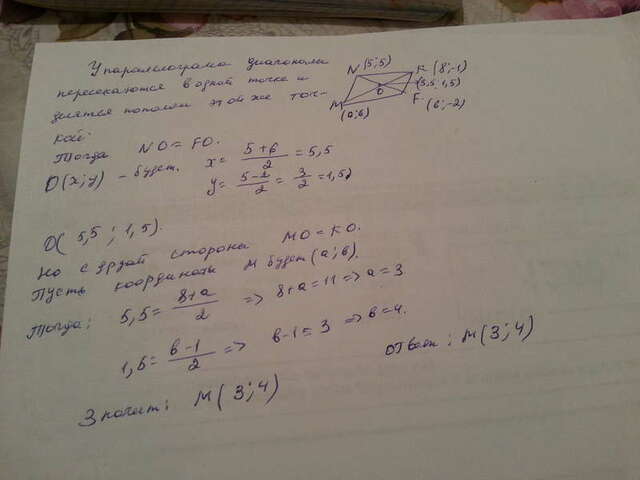 У параллелограма диагонали
пересекаются в одной точке и
делятся пополам этой же точ-
кой.
N (5;5)
K (8;-1)
(5,5;1,5)
O
M
(a;b)
F
(6;-2)
Тогда NO = FO.
O(x;y) - будет. x = 5+6/2 = 5,5
y = 5-2/2 = 3/2 = 1,5)
O( 5,5 ; 1,5).
Но с другой стороны MO = KO.
Пусть координаты M будет (a;b).
Тогда; 5,5 = 8+a/2 => 8+a=11 => a=3
1,5 = b-1/2 => b-1=3 => b=4.
Значит; M(3;4)
ответ; M(3;4)